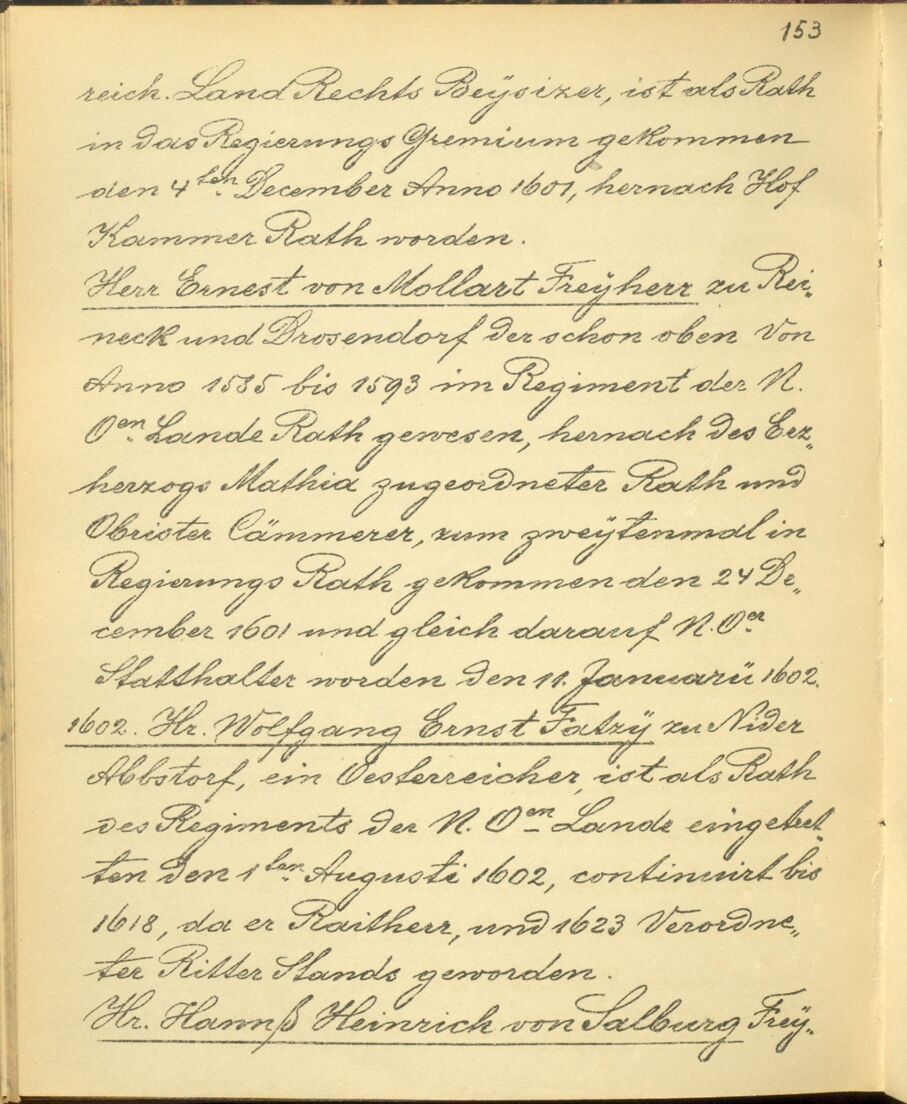 153
reich. Land Rechts Beÿsizer, ist als Rath
in das Regierungs Gremium gekommen
den 4ten. December Anno 1601, hernach Hof
Kammer Rath worden.
Herr Ernest von Mollart Freÿherr zu Rei„
neck und Drosendorf der schon oben Von
Anno 1585 bis 1593 im Regiment der N.
Oen. Lande Rath gewesen, hernach des Erz„
herzogs Mathia zugeordneter Rath und
Obrister Cämmerer, zum zweÿtenmal in
Regierungs Rath gekommen den 24 De„
cember 1601 und gleich darauf N. Oer
Statthalter worden den 11. Januarü 1602.
1602. Hr. Wolfgang Ernst Fatzÿ zu Nider
Abbstorf, ein Oesterreicher, ist als Rath
des Regiments der N. Oen Lande eingetret„
ten den 1ten. Augusti 1602, continuirt bis
1618, da er Raitherr, und 1623 Verordne„
ter Ritter Stands geworden.
Hr. Hannß Heinrich von Salburg Freÿ„